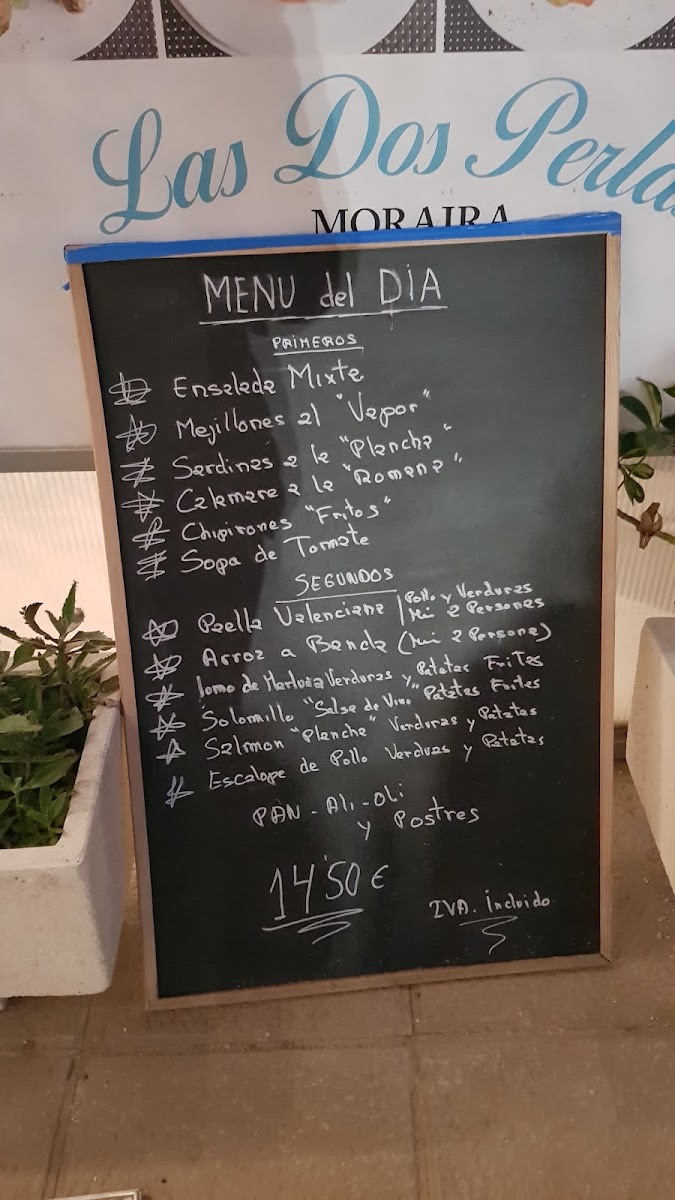 Las Dos Perla
MORAIRA
MENU del DIA
PRIMEROS
Ensalada Mixta
Mejillones al "Vapor"
Sardinas a la "Plancha"
Calamare a la "Romana"
Chipirones "Fritos"
Sopa de Tomate
SEGUNDOS
Paella Valenciana | Pollo y Verduras
Mi 2 Personas
Arroz a Banda (Mi 2 Persona)
lomo de Merluza Verduras y Patatas Frites
Solomillo "Salsa de Vino" Patatas Frites
Salmon "Plancha" Verduras y Patatas
Escalope de Pollo Verduas y Patatas
PAN - Ali - Oli
y Postres
14'50 €
IVA. incluido